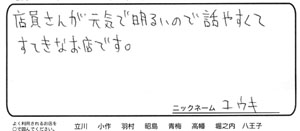 店員さんが元気で明るいので話やすくて
すてきなお店です。
ニックネーム ユウキ
よく利用されるお店を
○で囲んでください。
立川 小作 羽村 昭島 青梅 高幡 堀之内 八王子